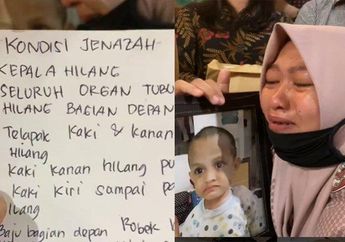 KONDISI JENAZAH
KEPALA HILANG
SELURUH ORGAN TUBU
HILANG BAGIAN DEPAN
Telapak kaki & kanan
Hilang
Kaki kanan hilang
Kaki kiri sampai
Hilang
Baju bagian depan Robek